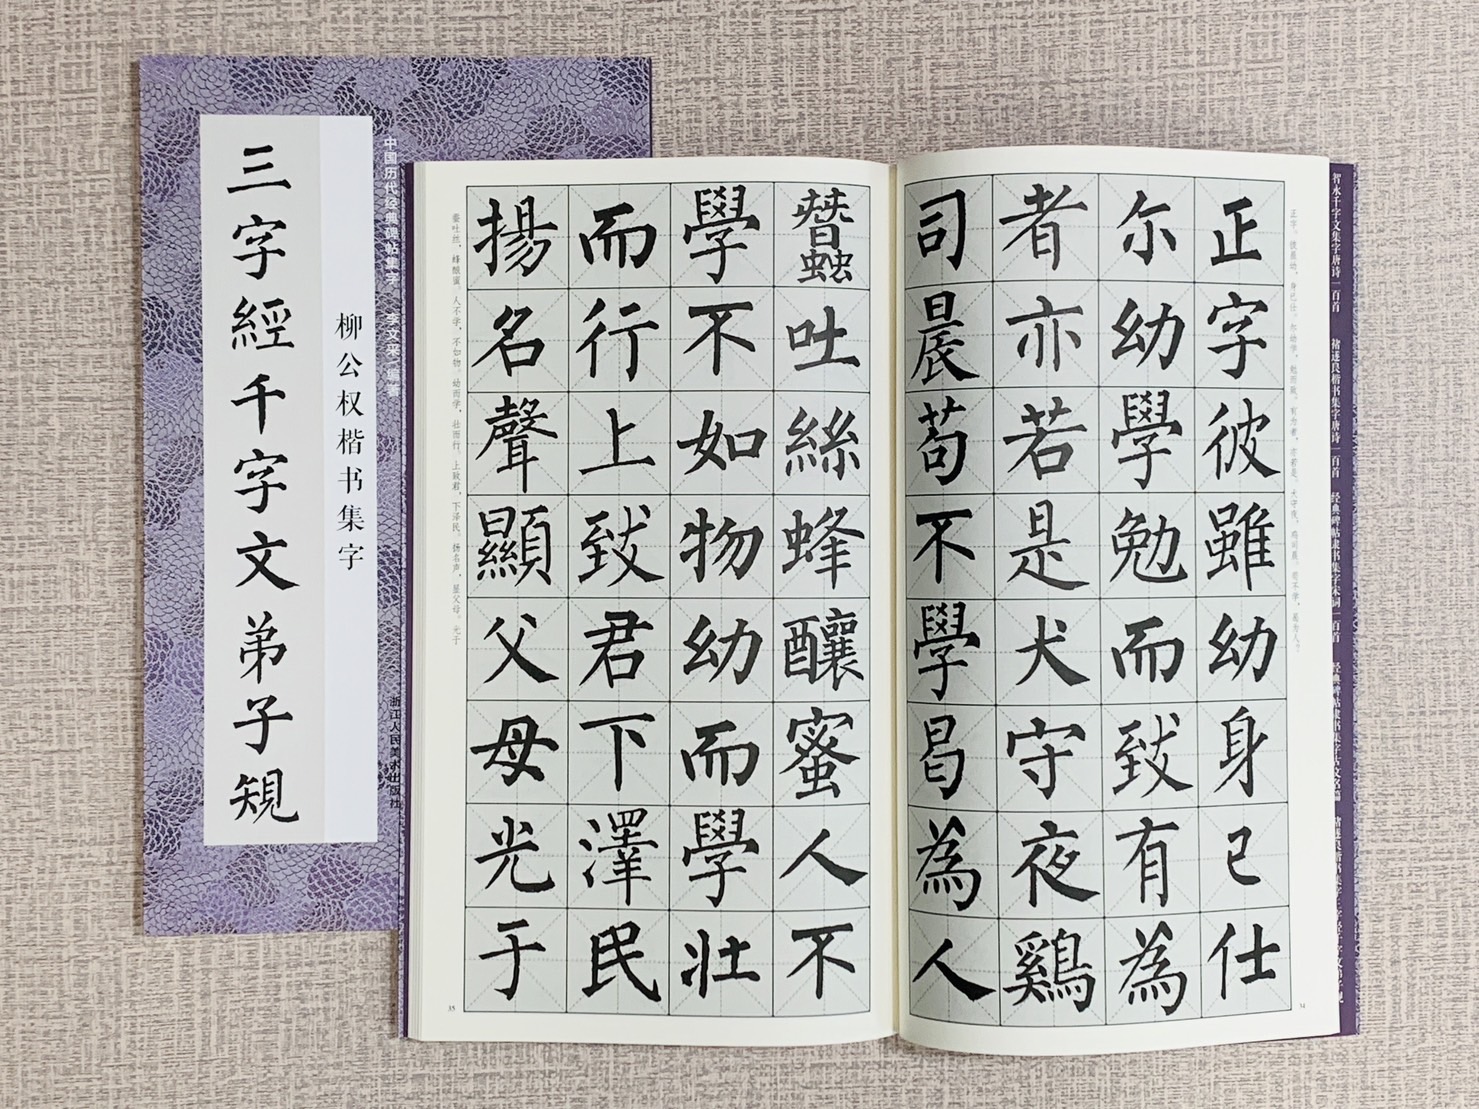 三字經千字文弟子規
柳公权楷书集字
中国历代经典碑帖集字
李文采 编著
浙江人民美术出版社
正字彼雖幼身已仕
尔幼學勉而致有為
者亦若是犬守夜鷄
司晨苟不學曷為人
蠶吐絲蜂釀蜜人不
學不如物幼而學壯
而行上致君下澤民
揚名聲顯父母光于
正字。彼虽幼，身已仕。尔幼学，勉而致。有为者，亦若是。犬守夜，鸡司晨。苟不学，曷为人。
34
蚕吐丝，蜂酿蜜。人不学，不如物。幼而学，壮而行。上致君，下泽民。扬名声，显父母。光于
35
智永千字文集字唐诗一百首
褚遂良楷书集字唐诗一百首
经典碑帖隶书集字宋词一百首
经典碑帖隶书集字古文名篇